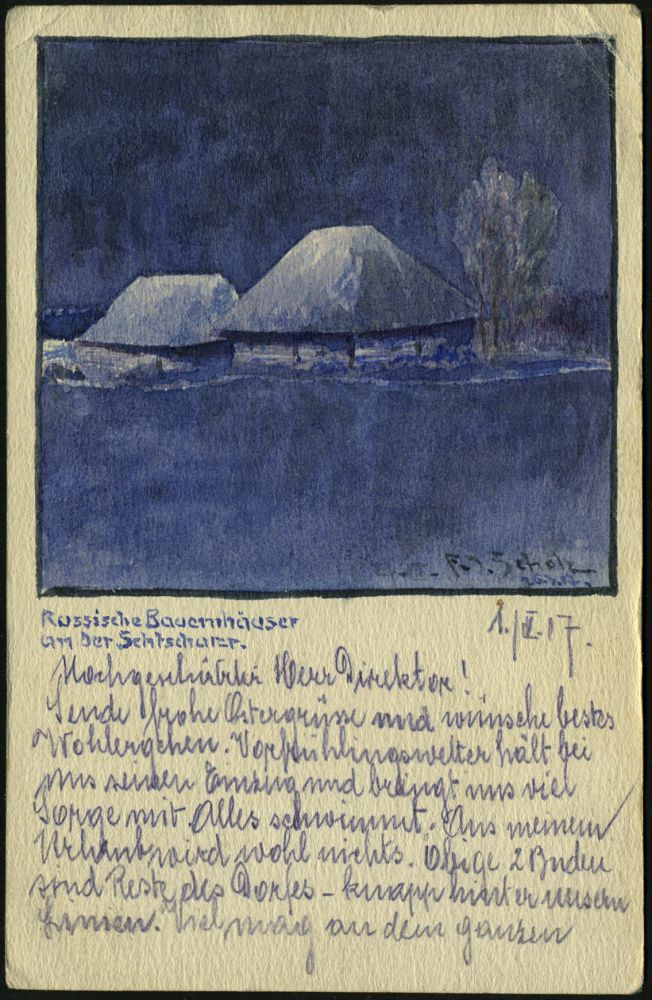 F. J. Scholz
Russische Bauernhäuser
an der Schtschara.
1./II.17.
Hochgeschätzter Herr Direktor!
Sende frohe Ostergrüsse und wünsche bestes
Wohlergehen. Vorfrühlingswetter hält bei
uns seinen Einzug und bringt uns viel
Sorge mit. Alles schwimmt. Aus meinem
Urlaub wird wohl nichts. Obige 2 Buden
sind Reste des Dorfes – knapp hinter unsern
Linien. Viel mag an dem ganzen